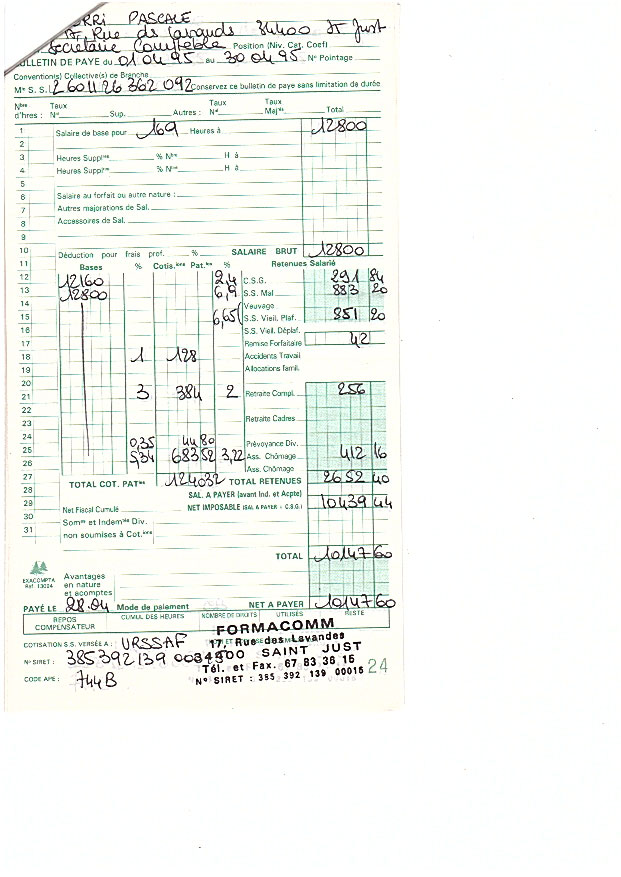 RRI PASCALE
17, Rue des Lavandes 34400 St Just
Secretaire Comptable Position (Niv. Cat. Coef)
BULLETIN DE PAYE du 01 04 95 au 30 04 95 N° Pointage
Convention(s) Collective(s) ce Branche
Mle S. S. 2 60 11 26 362 092 Conservez ce bulletin de paye sans limitation de durée
Nbre d'hres : Taux N^el Sup. Autres : Taux N^el Taux Maj^és Total
1 Salaire de base pour 169 Heures à 12800
2
3 Heures Suppl^res % N^bre H à
4 Heures Suppl^res % N^bre H à
5
6 Salaire au forfait ou autre nature :
7 Autres majorations de Sal.
8 Accessoires de Sal.
9
10 Déduction pour frais prof. % SALAIRE BRUT 12800
11 Bases % Cotis.ions Pat.les % Retenues Salarié
12 12160 2,4 C.S.G. 291 84
13 12800 6,9 S.S. Mal 883 20
14 Veuvage
15 6,65 S.S. Vieil. Plaf. 851 20
16 S.S. Vieil. Déplaf.
17 Remise Forfaitaire 42
18 1 128 Accidents Travail
19 Allocations famil.
20
21 3 384 2 Retraite Compl. 256
22
23 Retraite Cadres
24
25 0,35 44 80 Prévoyance Div.
26 5,34 683 52 3,22 Ass. Chômage 412 16
Ass. Chômage
27 TOTAL COT. PATles 1240 32 TOTAL RETENUES 2652 40
28 SAL. A PAYER (avant Ind. et Acpte)
29 Net Fiscal Cumulé NET IMPOSABLE (SAL A PAYER + C.S.G.) 10439 44
30 Som^es et Indem^tés Div.
31 non soumises à Cot.ions
TOTAL 10147 60
EXACOMPTA
Réf. 13004
Avantages
en nature
et acomptes
PAYÉ LE 28.04 Mode de paiement NET A PAYER 10147 60
REPOS COMPENSATEUR CUMUL DES HEURES NOMBRE DE DROITS UTILISÉS RESTE
COTISATION S.S. VERSÉE A : URSSAF
N° SIRET : 385 392 139 000
CODE APE : 744B
FORMACOMM
17, Rue des Lavandes
34400 SAINT JUST
Tél. et Fax. 67 83 36 15
N° SIRET : 385 392 139 00015
24